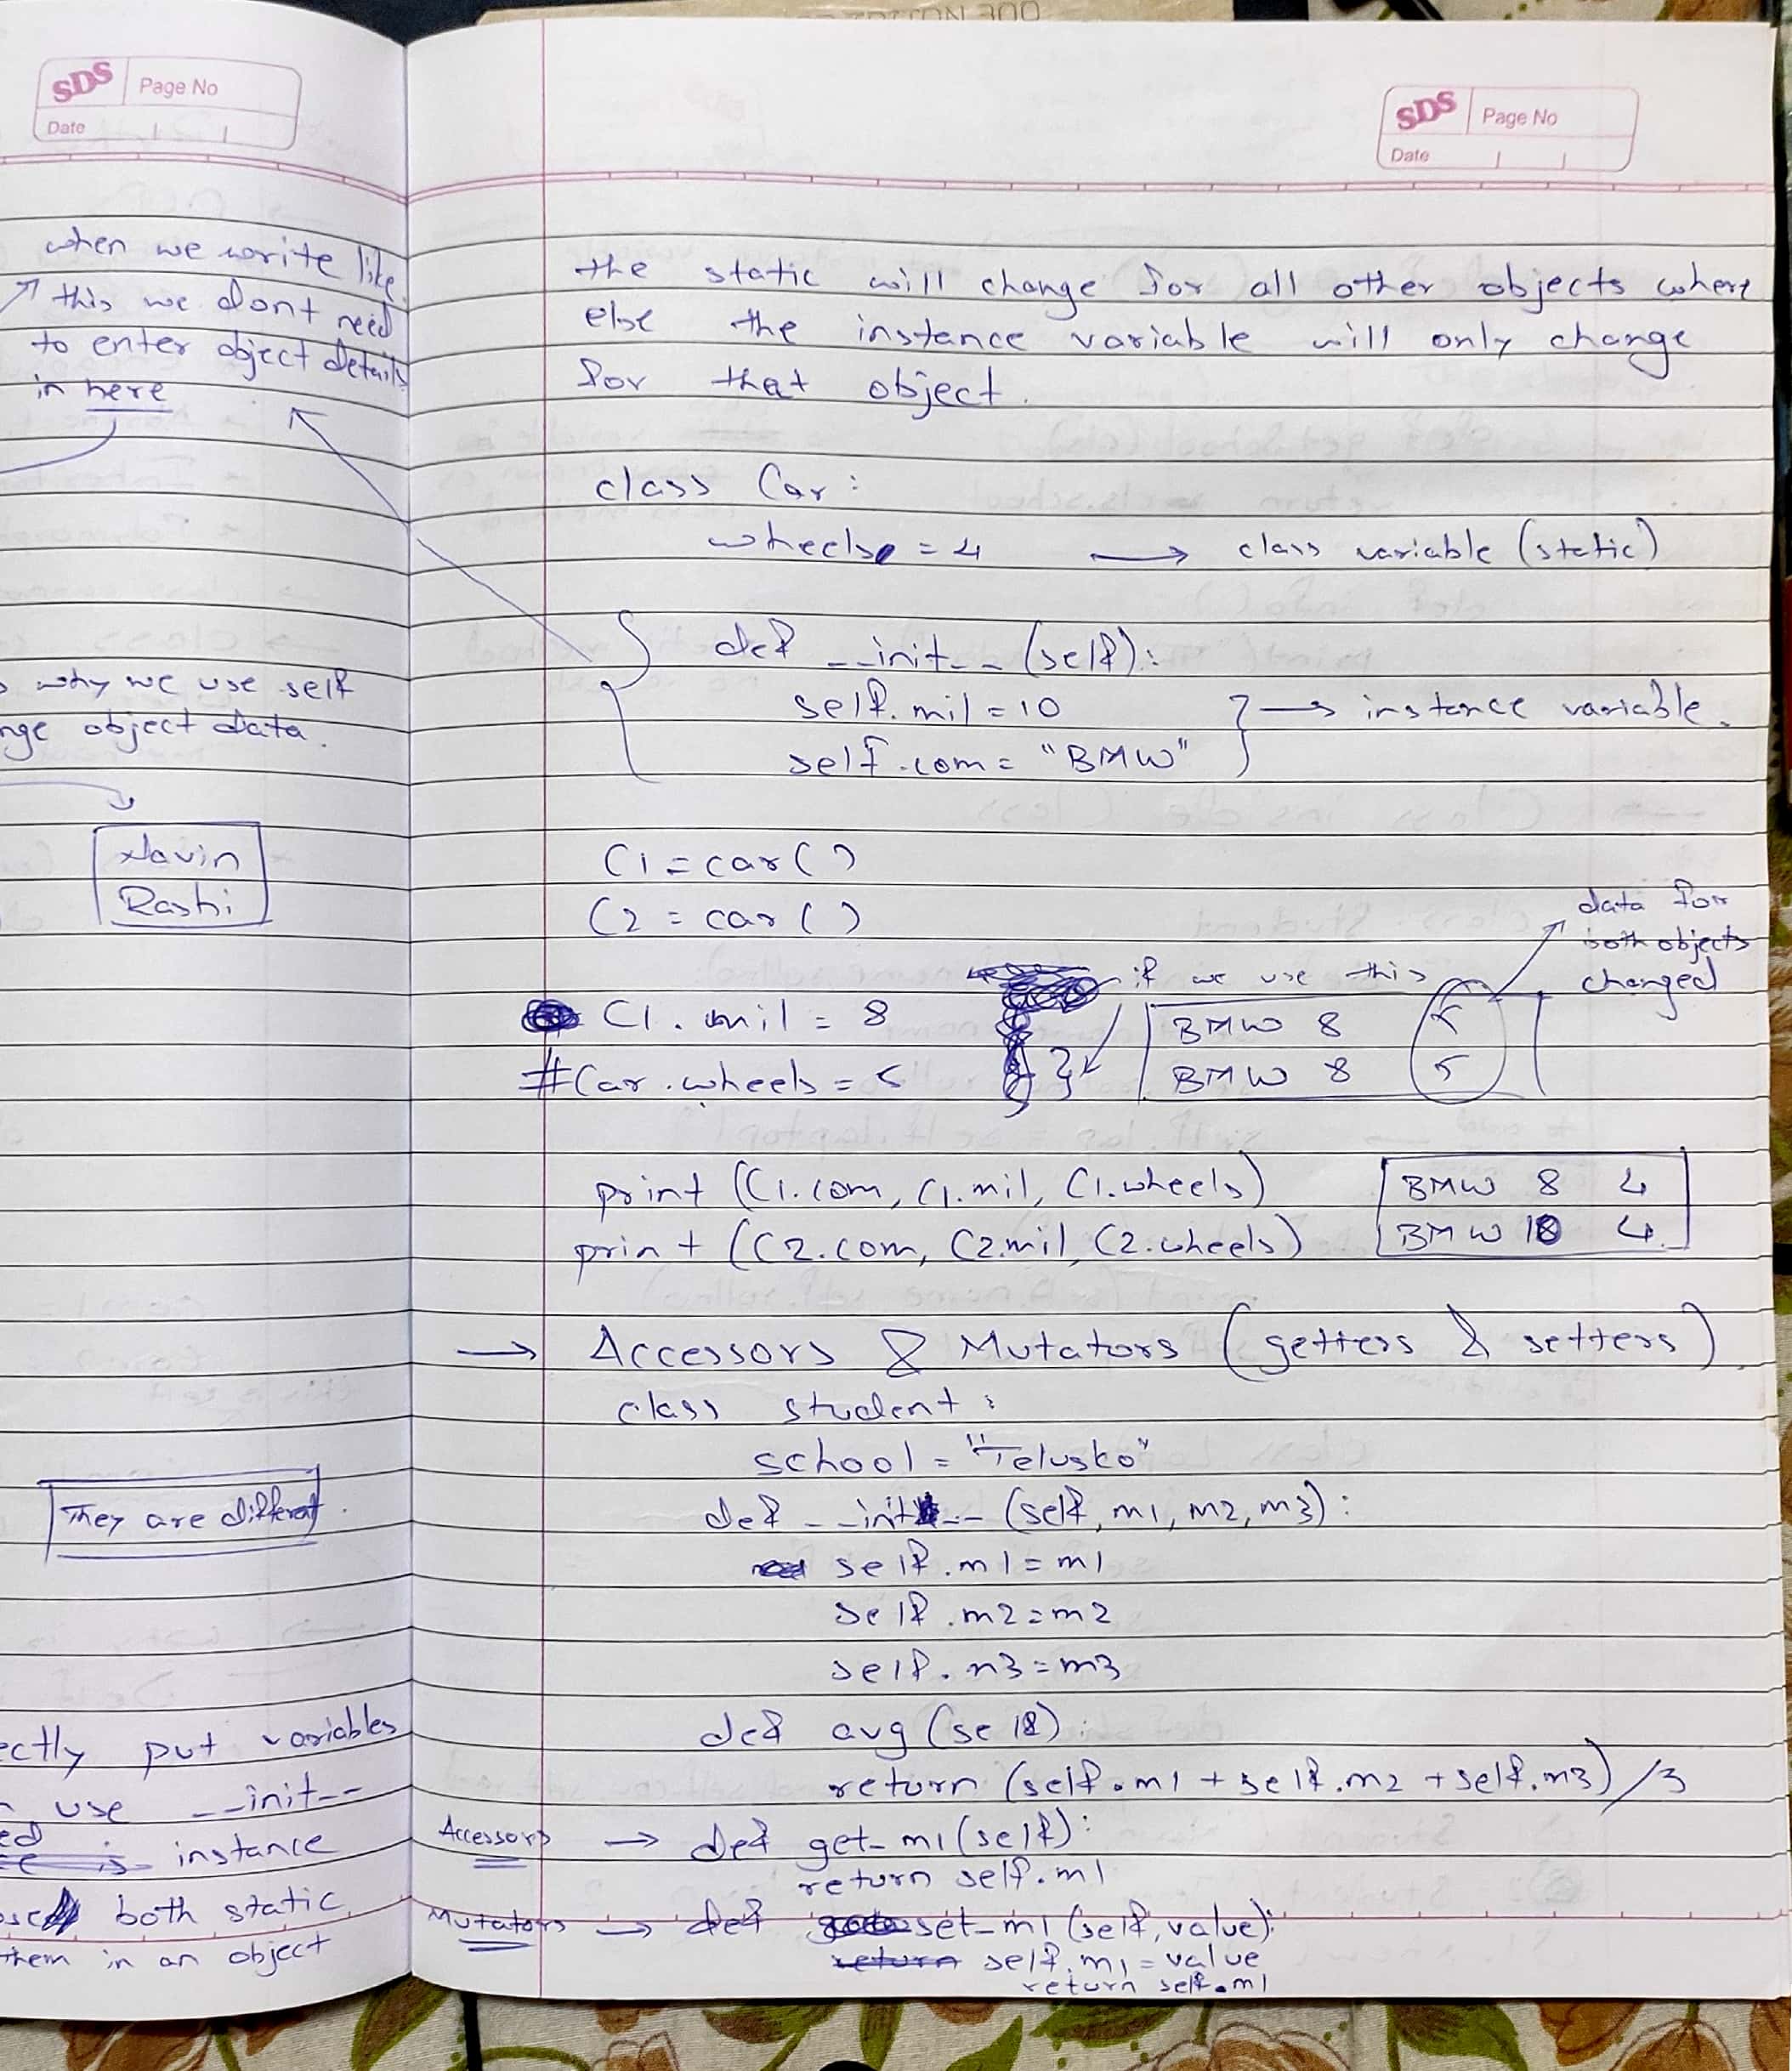 SDS Page No
Date
when we write like
this we dont need
to enter object details
in here
why we use self
object data.
Navin
Rashi
They are different.
ectly put variables
use __init__
instance
both static
them in an object
SDS Page No
Date
the static will change for all other objects where
else the instance variable will only change
for that object.
class Car:
wheels = 4 → class variable (static)
def __init__(self):
self.mil = 10
→ instance variable.
self.com = "BMW"
C1 = car()
C2 = car()
data for
both objects
changed
if we use this
C1.mil = 8
BMW 8 5
#Car.wheels = 5
BMW 8 5
print (C1.com, C1.mil, C1.wheels)
BMW 8 4
print (C2.com, C2.mil, C2.wheels)
BMW 10 4
→ Accessors & Mutators (getters & setters)
class student:
school = "Telusko"
def __init__(self, m1, m2, m3):
self.m1 = m1
self.m2 = m2
self.m3 = m3
def avg (self):
return (self.m1 + self.m2 + self.m3) /3
Accessors → def get_m1(self):
return self.m1
Mutators → def set_m1(self, value):
return self.m1 = value
return self.m1